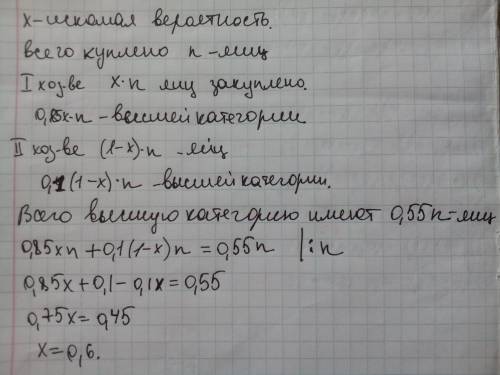 x-искомая вероятность.
всего куплено n-яиц
I хоз-ве x·n яиц закуплено.
0,85x·n - высшей категории
II хоз-ве (1-x)·n яиц
0,1(1-x)·n -высшей категории.
Всего высшую категорию имеют 0,55n-яиц
0,85xn+0,1(1-x)n=0,55n |:n
0,85x+0,1-0,1x=0,55
0,75x=0,45
x=0,6.